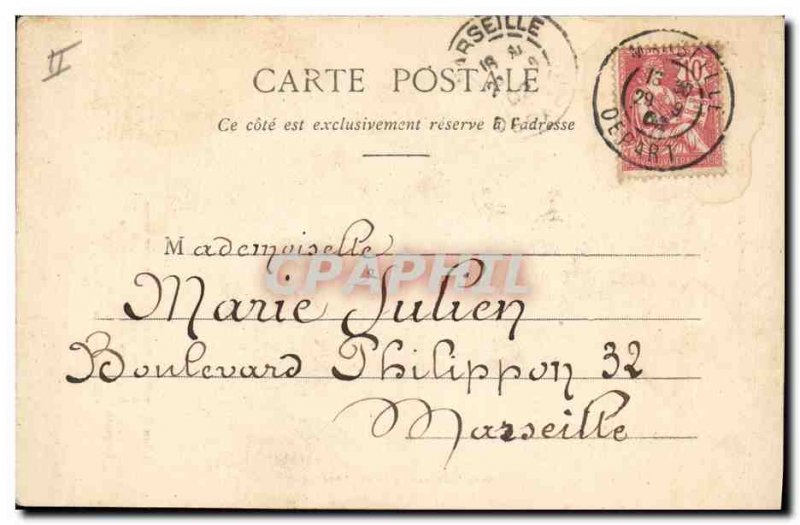 II
MARSEILLE
CARTE POSTALE
Ce côté est exclusivement réservé à l'adresse
10
MARSEILLE
DEPART
Mademoiselle
CPAPHIL
Marie Julien
Boulevard Philippon 32
Marseille